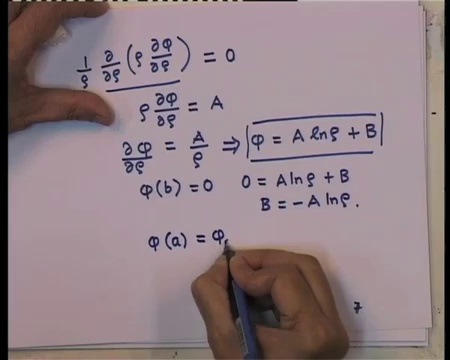 1/ρ ∂/∂ρ (ρ ∂φ/∂ρ) = 0
ρ ∂φ/∂ρ = A
∂φ/∂ρ = A/ρ ⇒ φ = A lnρ + B
φ(b) = 0 0 = A lnρ + B
B = -A lnρ.
φ(a) = φ
7